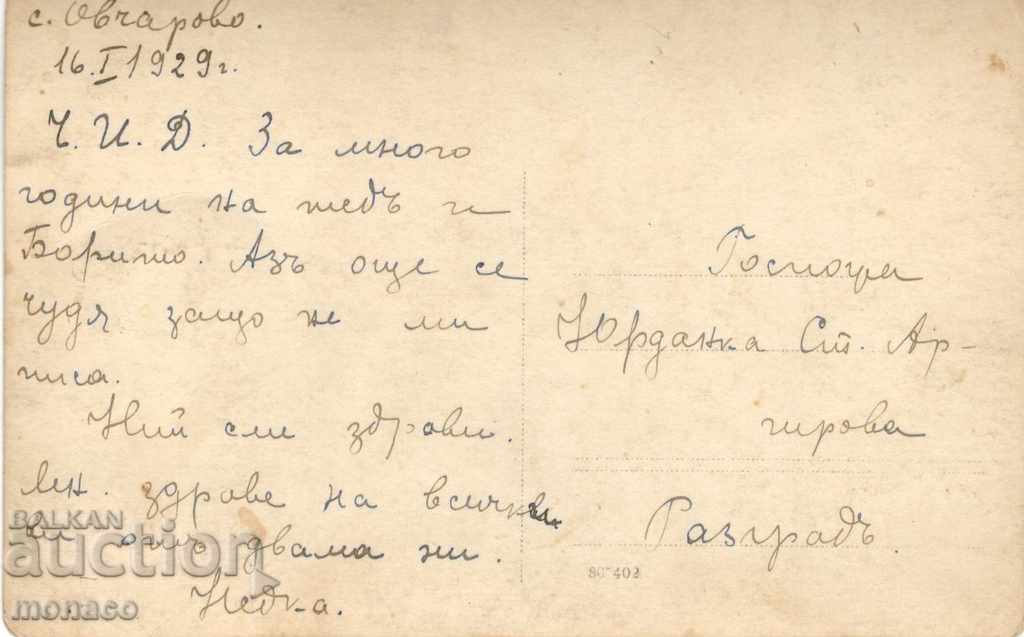 с. Овчарово.
16.I 1929 г.
Ч. И. Д. За много
години на тедъ и
Борито. Азъ още се
чудя защо не ми
писа.
Ний сми здрави.
Мн. здраве на всички
ви отъ двама ни.
Недка.
Госпожа
Юрданка Ст. Ар-
гирова
Разградъ.
807402
BALKAN
auction
monaco